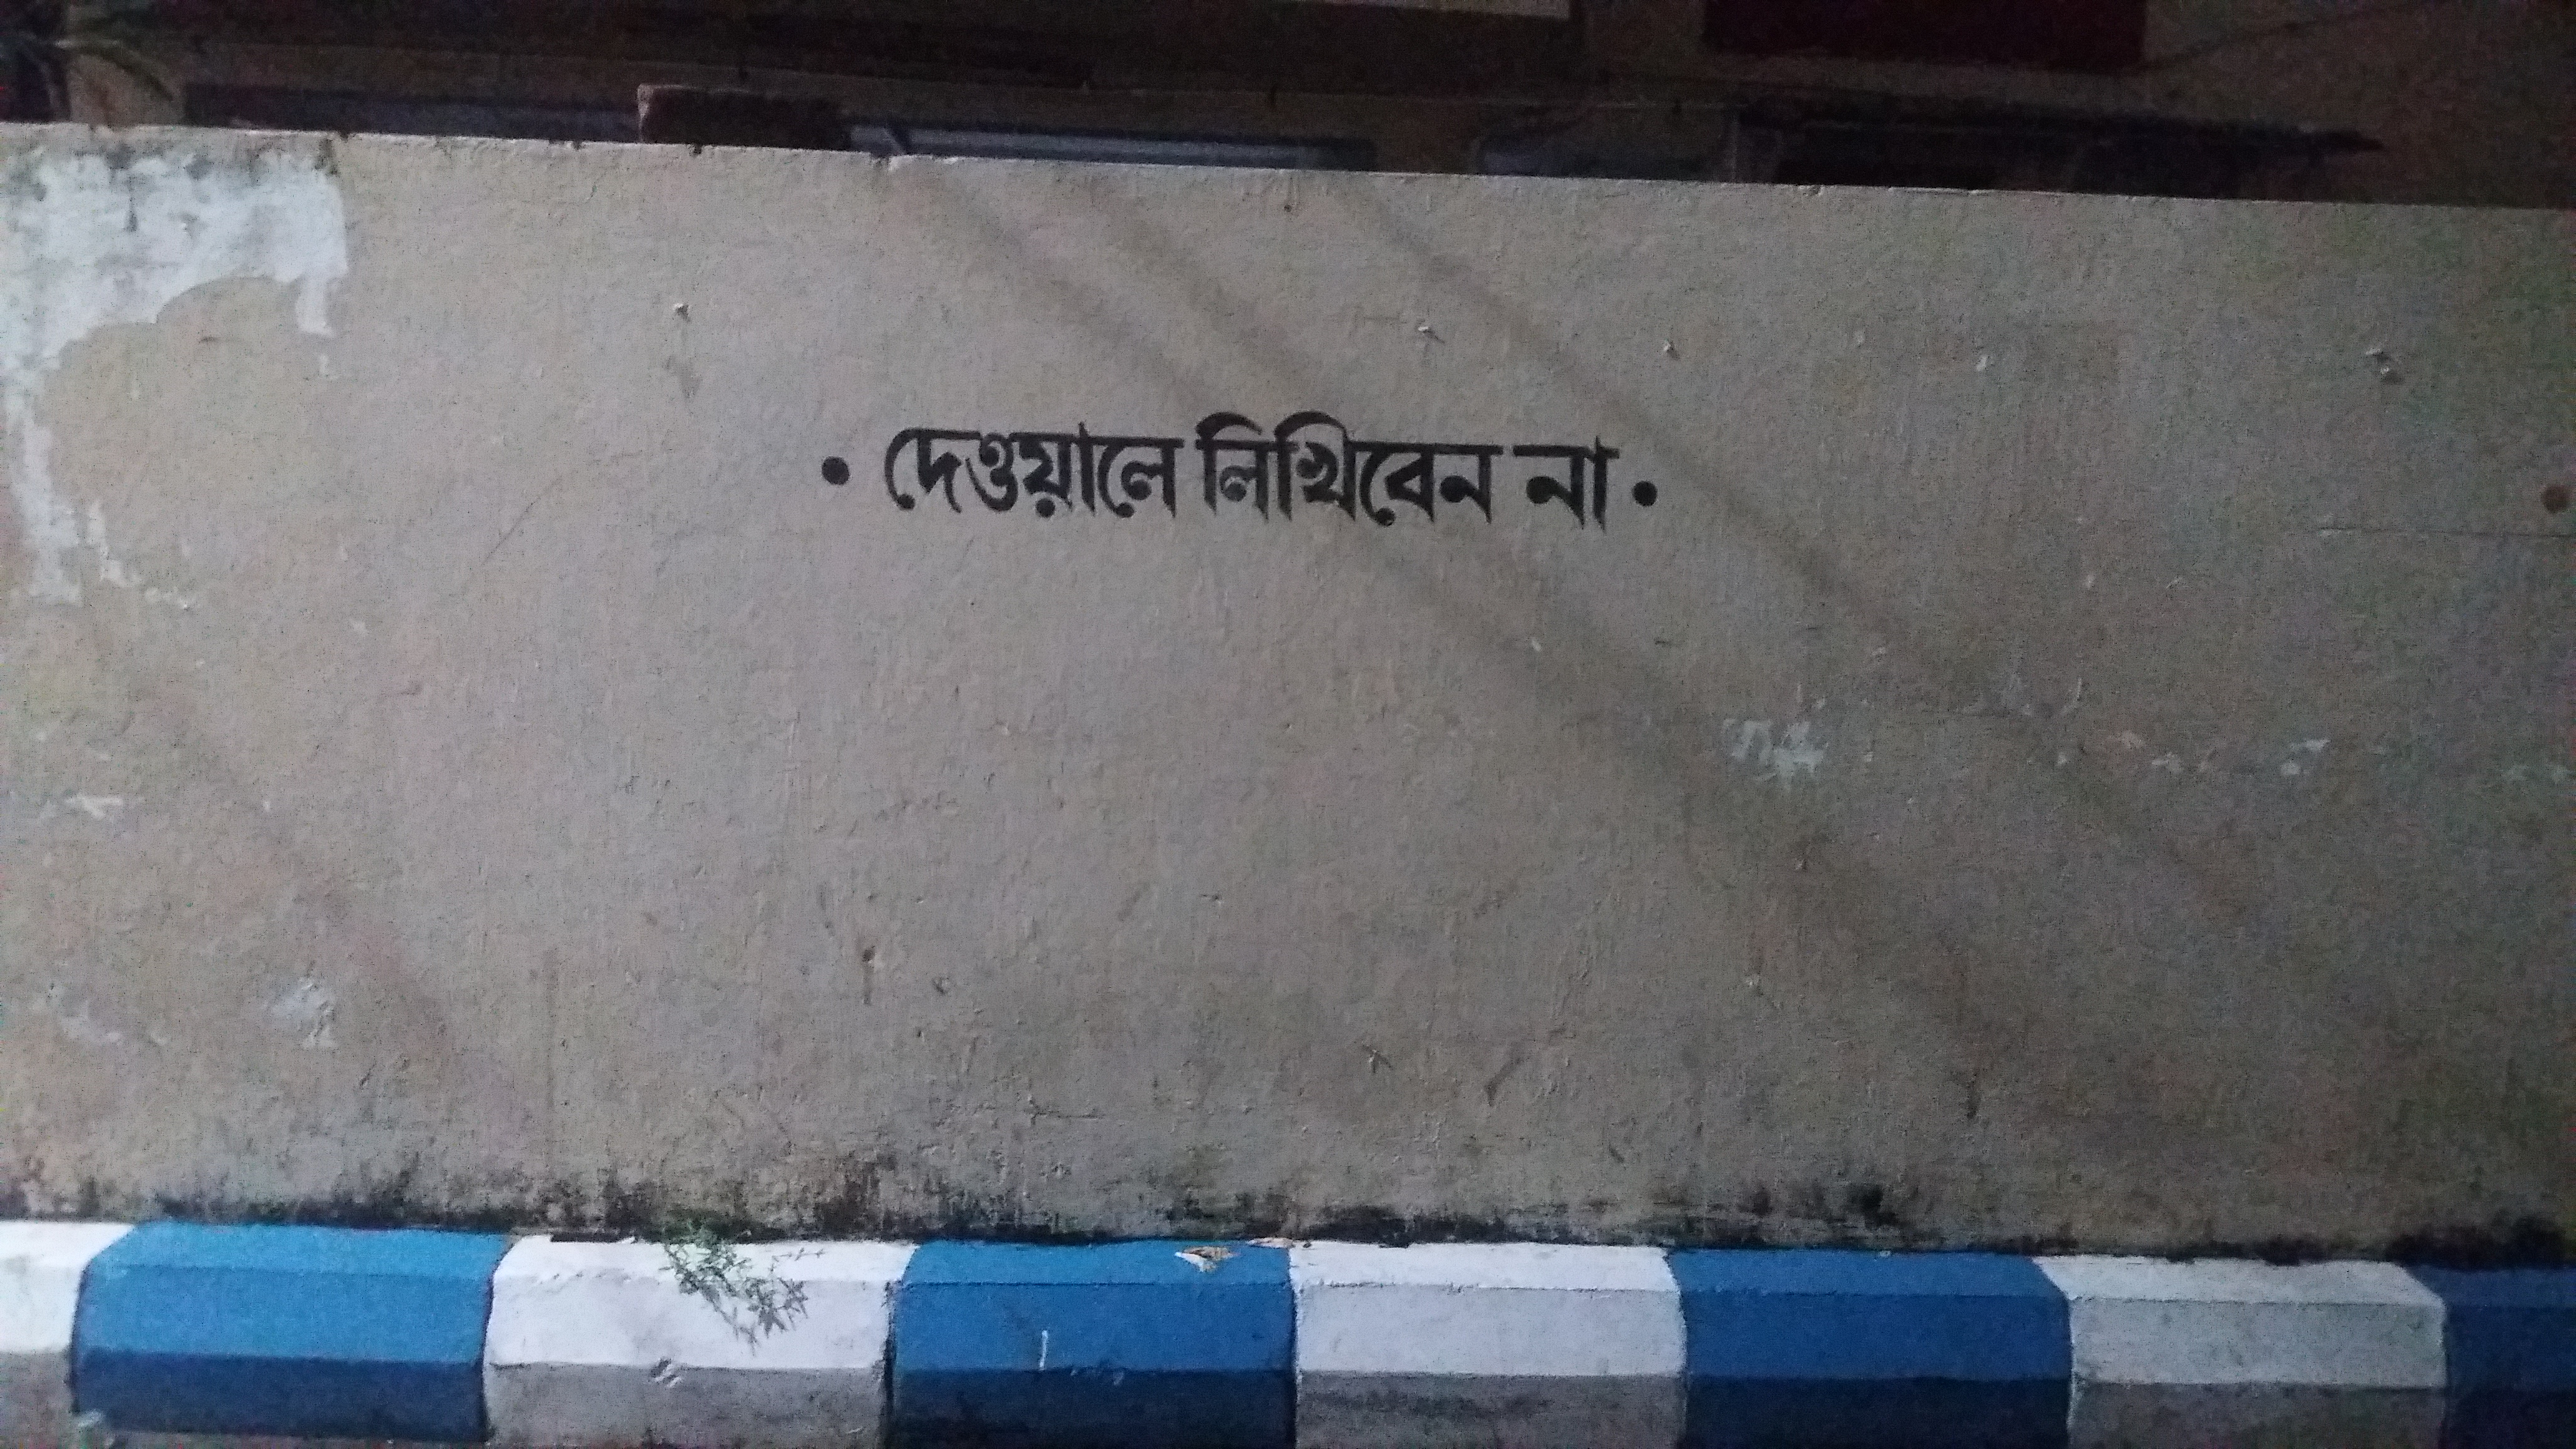 • দেওয়ালে লিখিবেন না •